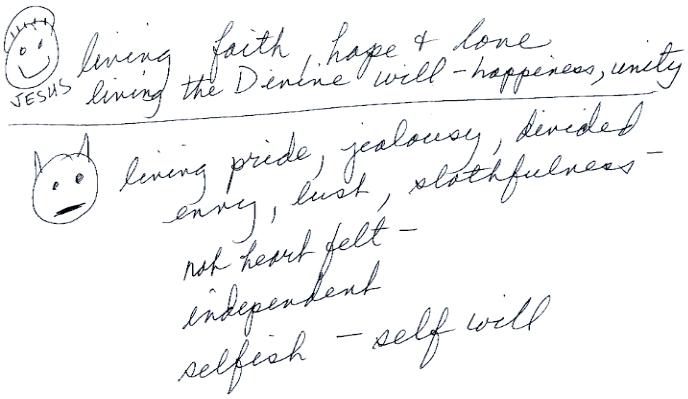 living faith, hope & love
JESUS living the Devine will - happiness, unity
living pride, jealousy, divided
envy, lust, slothfulness -
not heart felt -
independent
selfish - self will